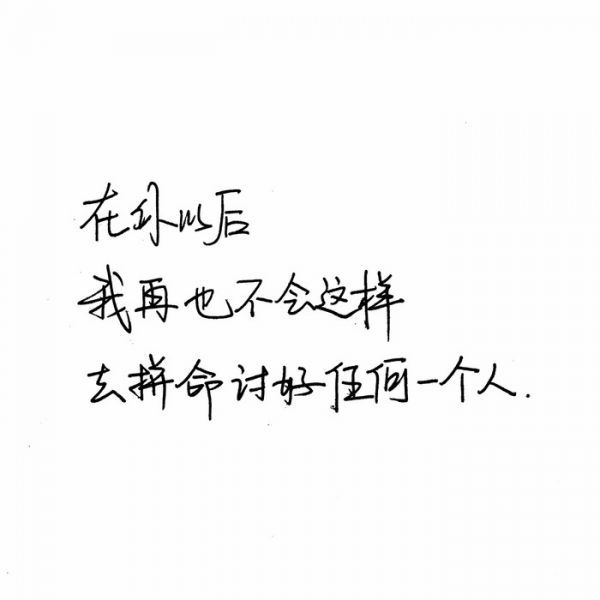 在你以后
我再也不会这样
去拼命讨好任何一个人.